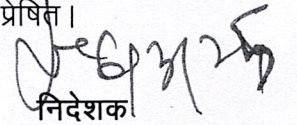 प्रेषित।
निदेशक